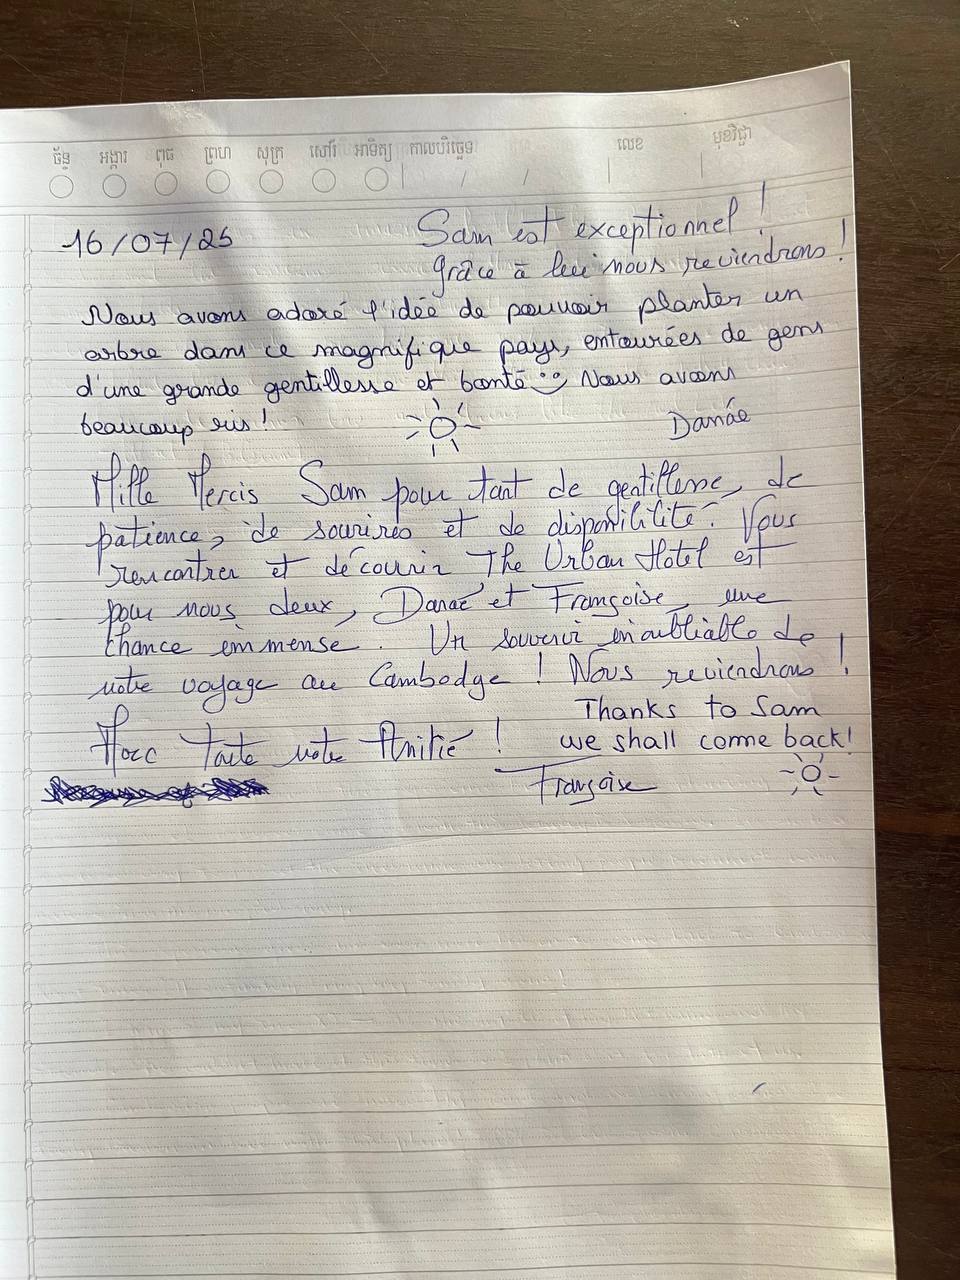 ច័ន្ទ អង្គារ ពុធ ព្រហ សុក្រ សៅរ៍ អាទិត្យ កាលបរិច្ឆេទ / / លេខ មុខវិជ្ជា
16/07/25
Sam est exceptionnel !
Grâce à lui nous reviendrons !
Nous avons adoré l'idée de pouvoir planter un
arbre dans ce magnifique pays, entourées de gens
d'une grande gentillesse et bonté Nous avons
beaucoup ris !
Danáe
Mille Mercis Sam pour tant de gentillesse, de
patience, de sourires et de disponibilité. Vous
rencontrer et découvrir The Urban Hotel est
pour nous deux, Danaé et Françoise, une
chance emmense. Un souvenir inoubliable de
notre voyage au Cambodge ! Nous reviendrons !
Thanks to Sam
we shall come back!
Avec toute notre Amitié !
Françoise